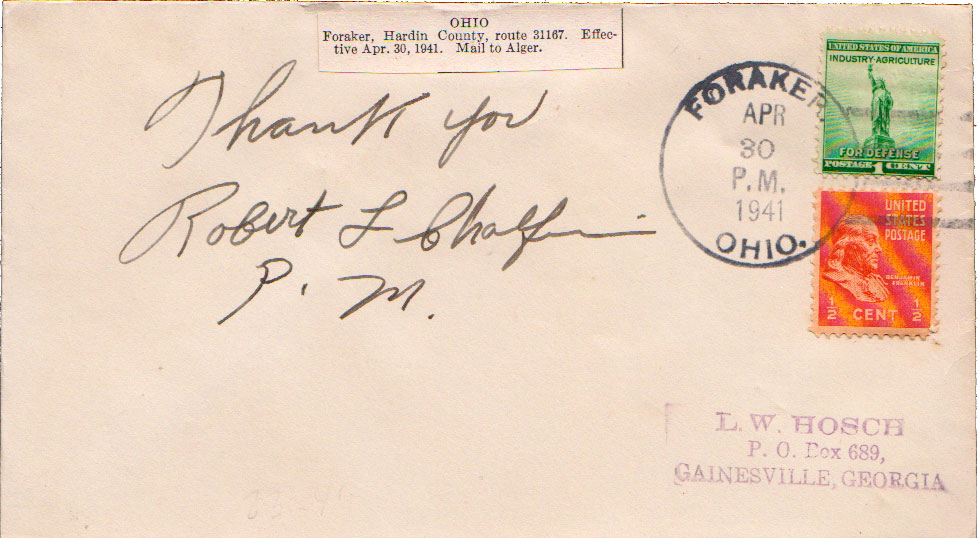 OHIO
Foraker, Hardin County, route 31167. Effec-
tive Apr. 30, 1941. Mail to Alger.
Thank you
Robert L Chalfin
P. M.
FORAKER
APR
30
P.M.
1941
OHIO.
UNITED STATES OF AMERICA
INDUSTRY-AGRICULTURE
FOR DEFENSE
POSTAGE 1 CENT
UNITED
STATES
POSTAGE
BENJAMIN
FRANKLIN
1/2 CENT 1/2
L. W. HOSCH
P. O. Box 689,
GAINESVILLE, GEORGIA